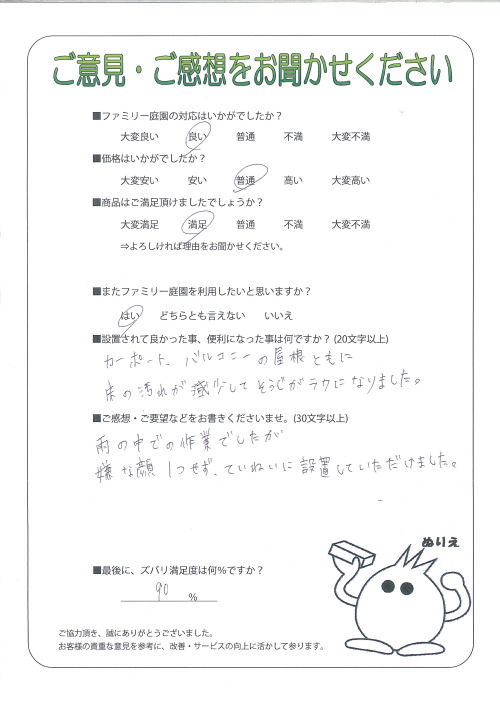 ご意見・ご感想をお聞かせください
■ファミリー庭園の対応はいかがでしたか？
大変良い 良い 普通 不満 大変不満
■価格はいかがでしたか？
大変安い 安い 普通 高い 大変高い
■商品はご満足頂けましたでしょうか？
大変満足 満足 普通 不満 大変不満
⇒よろしければ理由をお聞かせください。
■またファミリー庭園を利用したいと思いますか？
はい どちらとも言えない いいえ
■設置されて良かった事、便利になった事は何ですか？(20文字以上)
カーポート、バルコニーの屋根ともに
床の汚れが減少してそうじがラクになりました。
■ご感想・ご要望などをお書きくださいませ。(30文字以上)
雨の中での作業でしたが
嫌な顔1つせず、ていねいに設置していただけました。
ぬりえ
■最後に、ズバリ満足度は何%ですか？
90 %
ご協力頂き、誠にありがとうございました。
お客様の貴重な意見を参考に、改善・サービスの向上に活かして参ります。